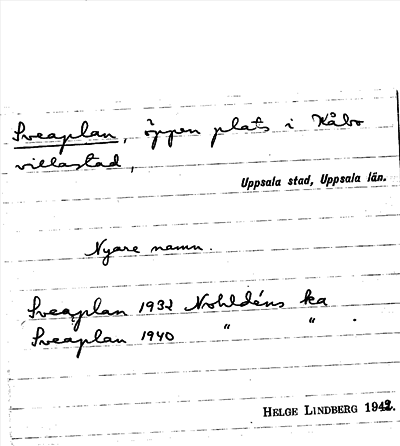 Sveaplan, öppen plats i Kåbo
villastad,
Uppsala stad, Uppsala län.
Nyare namn.
Sveaplan 1932 Nohldéns ka
Sveaplan 1940 " " .
HELGE LINDBERG 1942.